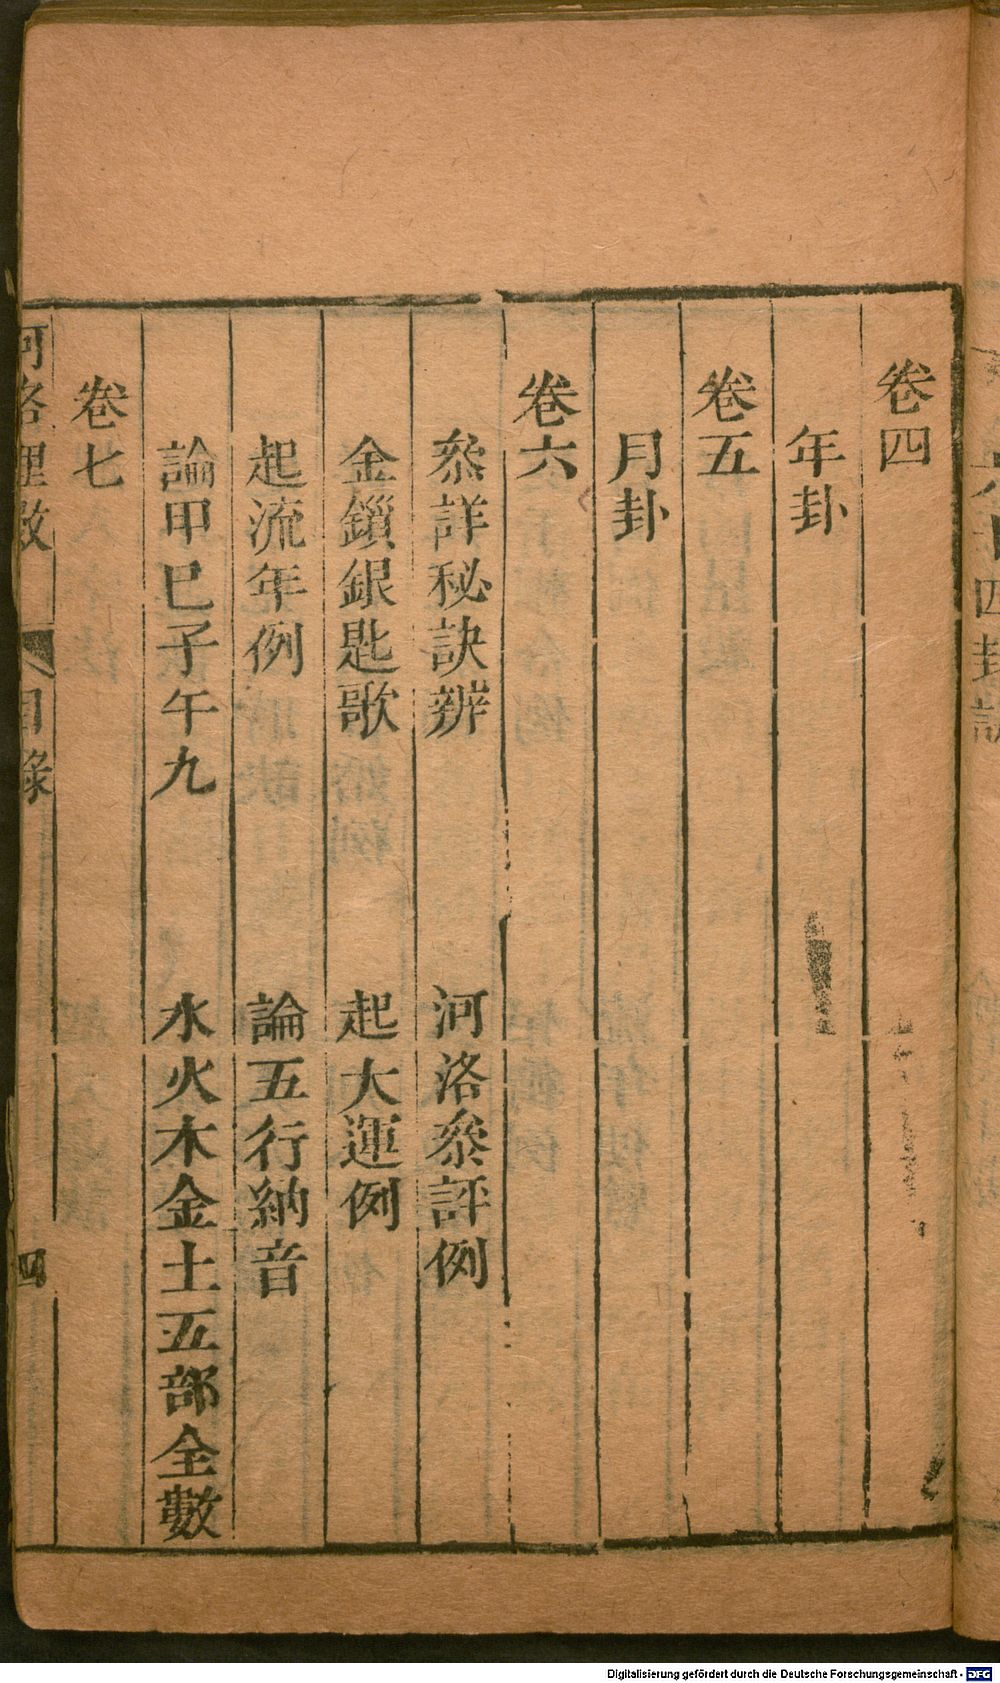 卷四
年卦
卷五
月卦
卷六
叅詳秘訣辨　河洛叅評例
金鎖銀匙歌　起大運例
起流年例　論五行納音
論甲巳子午九　水火木金土五部全數
卷七
河洛理數　目錄　四
Digitalisierung gefördert durch die Deutsche Forschungsgemeinschaft - DFG